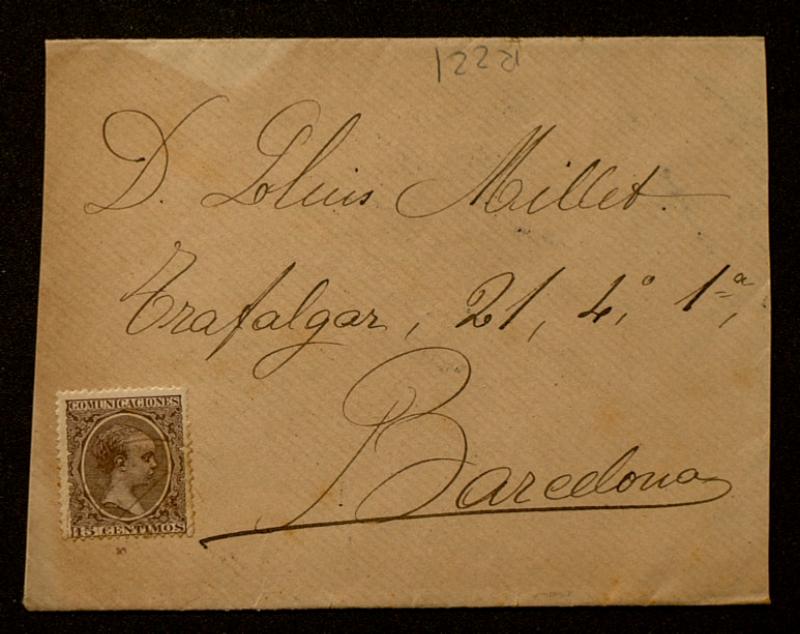 D. Lluis Millet.
Trafalgar, 21, 4º, 1ª,
Barcelona
COMUNICACIONES
15 CENTIMOS